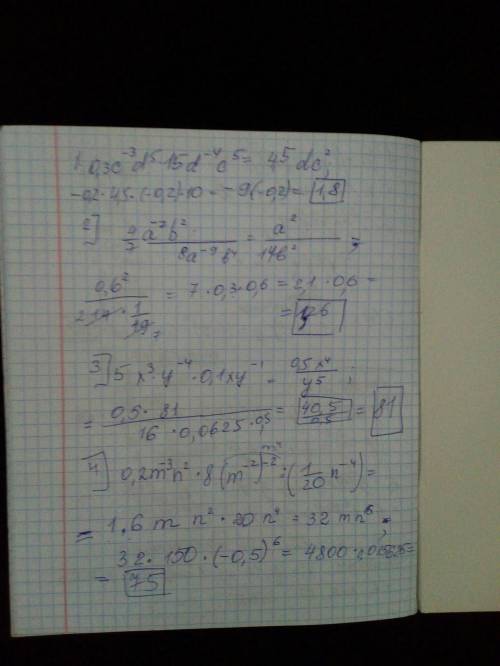 1. 0,3c⁻³d⁵·15d⁻⁴c⁵ = 4,5 dc²;
-0,2·4,5·(-0,2)·10 = -9(-0,2) = 1,8
2] a⁻⁷b² / 8a⁻⁹b⁴ = a² / 14b² ;
0,6² / = 7·0,3·0,6 = 2,1·0,6 =
=
3] 5x³·y⁻⁴·0,1xy⁻¹ = 0,5x⁴ / y⁵ ;
= 0,5·81 / 16·0,0625·0,5 = 40,5 / 0,5 = 81
4] 0,2m⁻³n²·8(m⁻²)⁻² : (1/20 n⁻⁴) =
= 1.6 m n²·20n⁴ = 32 mn⁶ ;
32·150·(-0,5)⁶ = 4800·
= 75